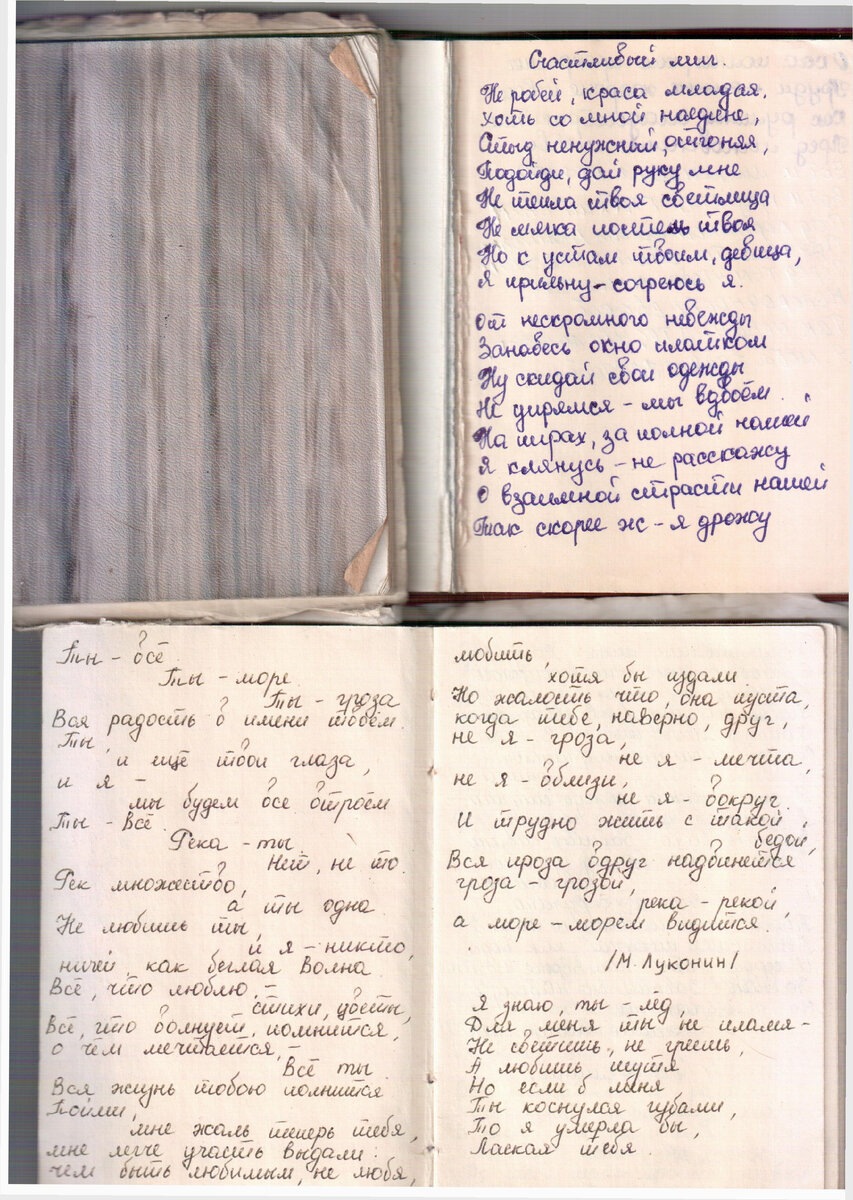 Счастливый миг.
Не робей, краса младая,
Хоть со мной наедине,
Стыд ненужный, отгоняя,
Подойди, дай руку мне
Не тепла твоя светлица
Не мягка постель твоя
Но к устам твоим, девица,
Я прильну – согреюсь я.
От нескромного невежды
Занавесь окно платком
Ну скидай свои одежды
Не упрямся – мы вдвоём.
На пирах, за полной чашей
Я клянусь – не расскажу
О взаимной страсти нашей
Так скорее ж – я дрожу
Ты – всё.
Ты – море.
Ты – гроза
Вся радость в имени твоём.
Ты,
и ещё твои глаза,
и я –
мы будем все втроём
Ты – Всё.
Река – ты.
Нет, не то.
Рек множество,
а ты одна
Не любишь ты,
и я – никто,
ничей, как беглая Волна.
Всё, что люблю, –
стихи, цветы,
Всё, что волнует, помнится,
о чём мечтается, –
Всё ты.
Вся жизнь тобою полнится
Пойми,
мне жаль теперь тебя,
мне легче участь выдали:
чем быть любимым, не любя,
любить,
хотя бы издали.
Но жалость что, она пуста,
когда тебе, наверно, друг,
не я – гроза,
не я – мечта,
не я – вблизи,
не я – вокруг.
И трудно жить с такой
бедой,
Вся проза вдруг надвинется
гроза – грозой,
река – рекой,
а море – морем видится.
/М. Луконин/
Я знаю, ты – лёд,
Для меня ты не пламя –
Не светишь, не греешь,
А любишь шутя
Но если б меня
Ты коснулся губами,
То я умерла бы,
Лаская тебя.